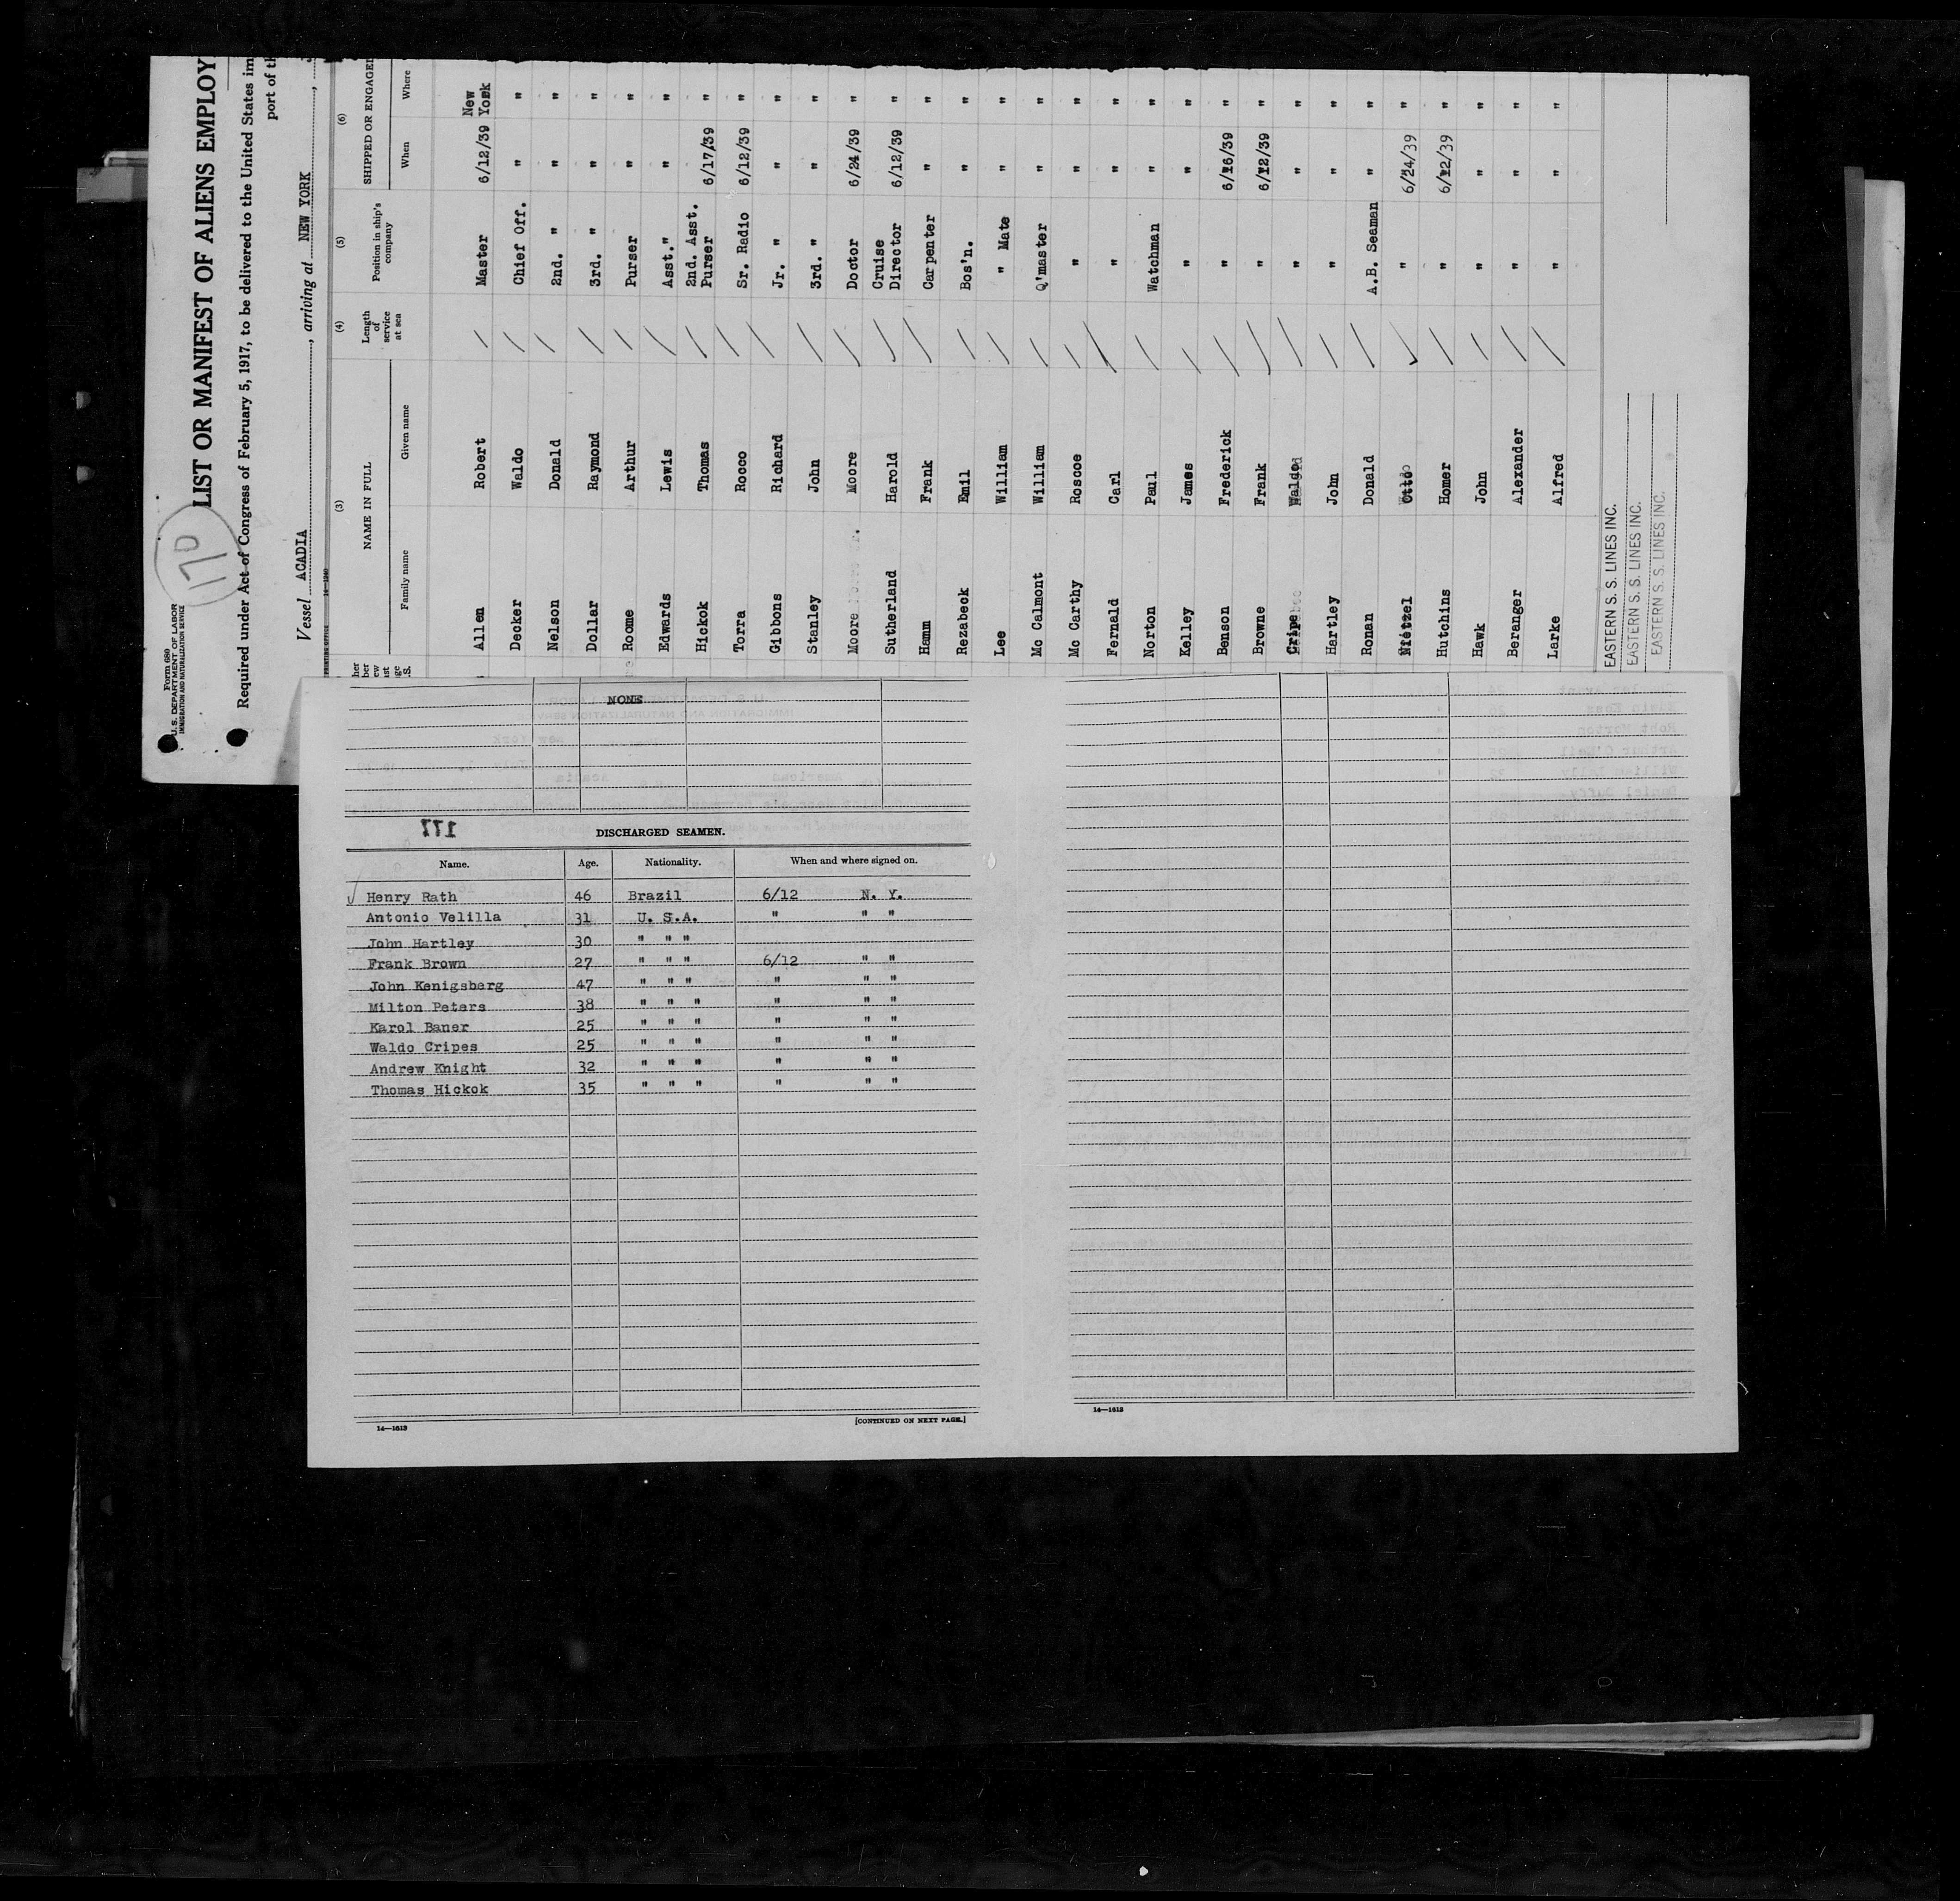 Form 680
U. S. DEPARTMENT OF LABOR
IMMIGRATION AND NATURALIZATION SERVICE
170
LIST OR MANIFEST OF ALIENS EMPLOY
Required under Act of Congress of February 5, 1917, to be delivered to the United States im
port of th
Vessel ACADIA, arriving at NEW YORK,
PRINTING OFFICE 14—1240
(3) (4) (5) (6)
NAME IN FULL Length of service at sea Position in ship's company SHIPPED OR ENGAGED
Family name Given name When Where
Allen Robert Master 6/12/39 New York
Decker Waldo Chief Off. " "
Nelson Donald 2nd. " " "
Dollar Raymond 3rd. " " "
Roome Arthur Purser " "
Edwards Lewis Asst." " "
Hickok Thomas 2nd. Asst. Purser 6/17/39 "
Torra Rocco Sr. Radio 6/12/39 "
Gibbons Richard Jr. " " "
Stanley John 3rd. " " "
Moore Moore Doctor 6/24/39 "
Sutherland Harold Cruise Director 6/12/39 "
Hamm Frank Carpenter " "
Rezabeck Emil Bos'n. " "
Lee William " Mate " "
Mc Calmont William Q'master " "
Mc Carthy Roscoe " " "
Fernald Carl " " "
Norton Paul Watchman " "
Kelley James " " "
Benson Frederick " 6/16/39 "
Browne Frank " 6/12/39 "
Cripe Waldo " " "
Hartley John " " "
Ronan Donald A.B. Seaman " "
Nietzel Otto " 6/24/39 "
Hutchins Homer " 6/12/39 "
Hawk John " " "
Beranger Alexander " " "
Larke Alfred " " "
EASTERN S. S. LINES INC.
EASTERN S. S. LINES INC.
EASTERN S. S. LINES INC.
NONE
177
DISCHARGED SEAMEN.
Name. Age. Nationality. When and where signed on.
Henry Rath 46 Brazil 6/12 N. Y.
Antonio Velilla 31 U. S.A. " " "
John Hartley 30 " " "
Frank Brown 27 " " " 6/12 " "
John Kenigsberg 47 " " " " " "
Milton Peters 38 " " " " " "
Karol Baner 25 " " " " " "
Waldo Cripes 25 " " " " " "
Andrew Knight 32 " " " " " "
Thomas Hickok 35 " " " " " "
14—1613 [CONTINUED ON NEXT PAGE.]
14—1613